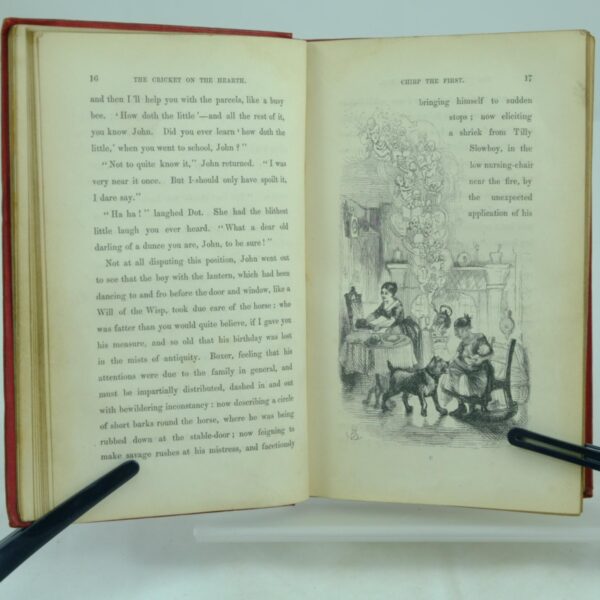 16 THE CRICKET ON THE HEARTH.
and then I'll help you with the parcels, like a busy
bee. 'How doth the little'—and all the rest of it,
you know John. Did you ever learn 'how doth the
little,' when you went to school, John?"
"Not to quite know it," John returned. "I was
very near it once. But I should only have spoilt it,
I dare say."
"Ha ha!" laughed Dot. She had the blithest
little laugh you ever heard. "What a dear old
darling of a dunce you are, John, to be sure!"
Not at all disputing this position, John went out
to see that the boy with the lantern, which had been
dancing to and fro before the door and window, like a
Will of the Wisp, took due care of the horse: who
was fatter than you would quite believe, if I gave you
his measure, and so old that his birthday was lost
in the mists of antiquity. Boxer, feeling that his
attentions were due to the family in general, and
must be impartially distributed, dashed in and out
with bewildering inconstancy: now describing a circle
of short barks round the horse, where he was being
rubbed down at the stable-door; now feigning to
make savage rushes at his mistress, and facetiously
CHIRP THE FIRST. 17
bringing himself to sudden
stops; now eliciting
a shriek from Tilly
Slowboy, in the
low nursing-chair
near the fire, by
the unexpected
application of his